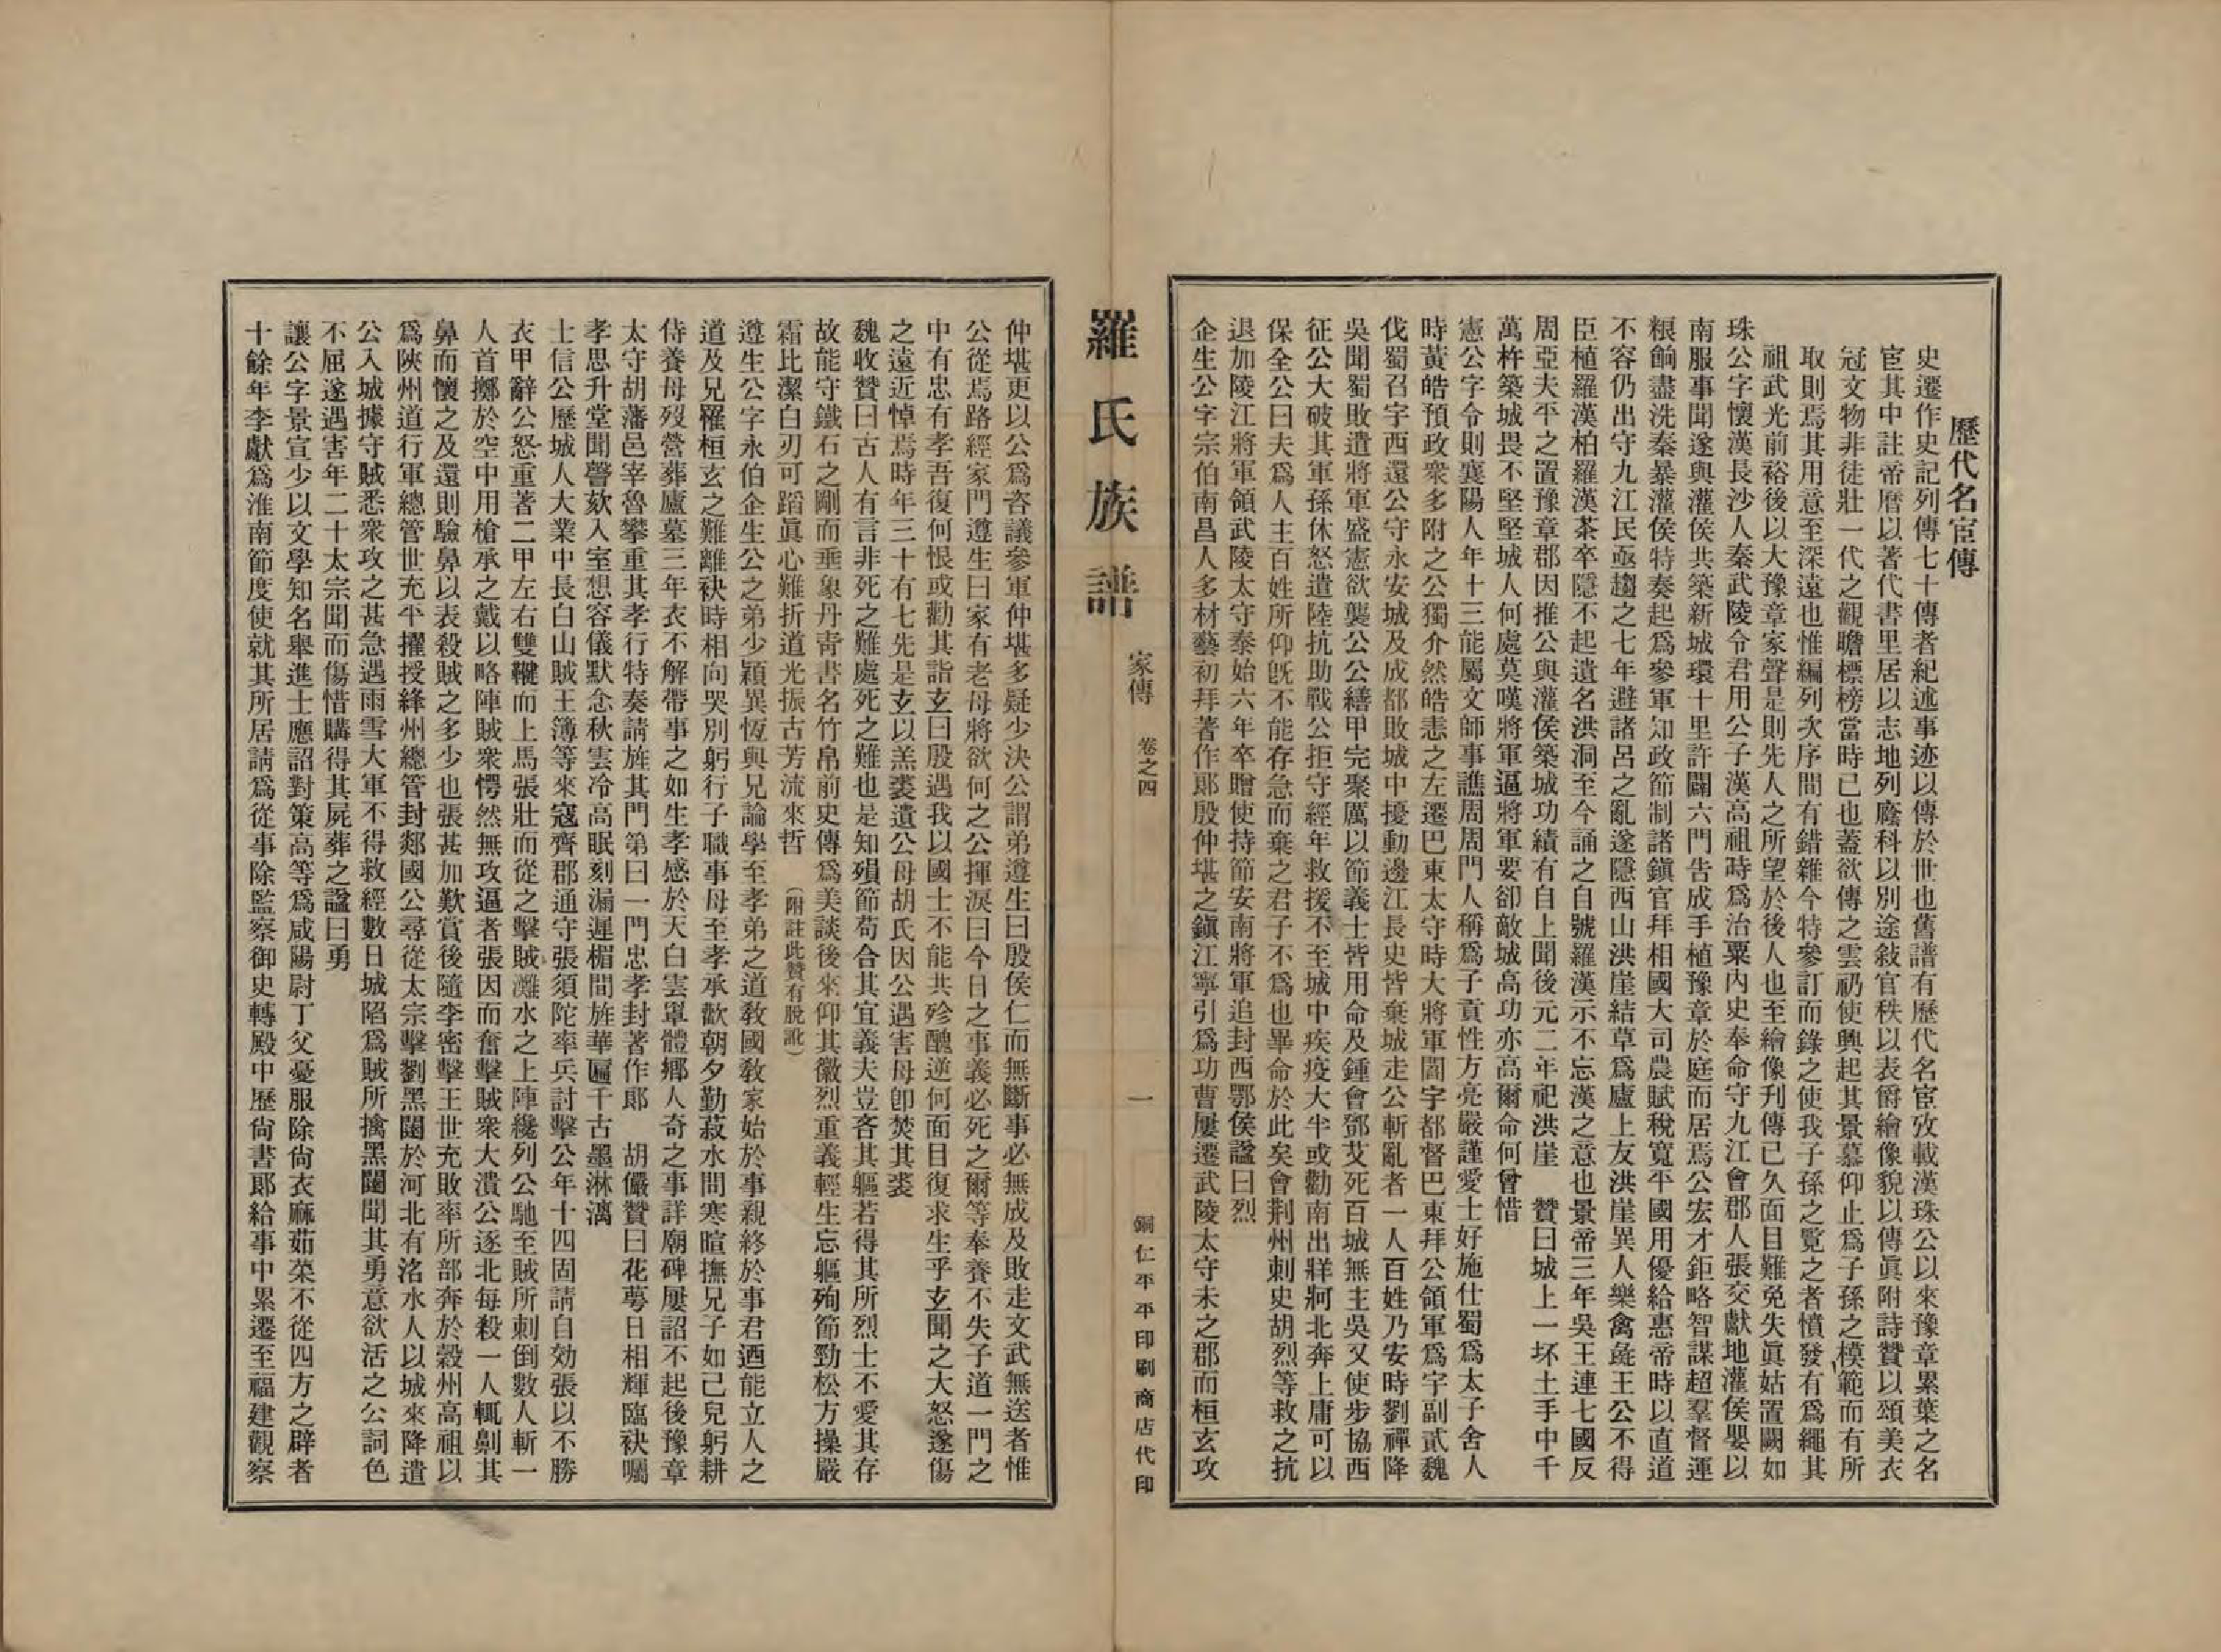 歷代名宦傳
史遷作史記列傳七十傳者紀述事迹以傳於世也舊譜有歷代名宦攷載漢珠公以來豫章累葉之名
宦其中註帝曆以著代書里居以志地列廕科以別途敍官秩以表爵繪像貌以傳眞附詩贊以頌美衣
冠文物非徒壯一代之觀瞻標榜當時已也蓋欲傳之雲礽使興起其景慕仰止爲子孫之模範而有所
取則焉其用意至深遠也惟編列次序間有錯雜今特參訂而錄之使我子孫之覽之者憤發有爲繩其
祖武光前裕後以大豫章家聲是則先人之所望於後人也至繪像刋傳已久面目難免失眞姑置闕如
珠公字懷漢長沙人秦武陵令君用公子漢高祖時爲治粟內史奉命守九江會郡人張交獻地灌侯嬰以
南服事聞遂與灌侯共築新城環十里許闢六門告成手植豫章於庭而居焉公宏才鉅略智謀超羣督運
糧餉盡洗秦暴灌侯特奏起爲參軍知政節制諸鎭官拜相國大司農賦稅寬平國用優給惠帝時以直道
不容仍出守九江民亟趨之七年避諸呂之亂遂隱西山洪崖結草爲廬上友洪崖異人樂禽彘王公不得
臣植羅漢柏羅漢茶卒隱不起遺名洪洞至今誦之自號羅漢示不忘漢之意也景帝三年吳王連七國反
周亞夫平之置豫章郡因推公與灌侯築城功績有自上聞後元二年祀洪崖　贊曰城上一坏土手中千
萬杵築城畏不堅堅城人何處莫嘆將軍逼將軍要卻敵城高功亦高爾命何曾惜
憲公字令則襄陽人年十三能屬文師事譙周周門人稱爲子貢性方亮嚴謹愛士好施仕蜀爲太子舍人
時黃皓預政衆多附之公獨介然皓恚之左遷巴東太守時大將軍閻宇都督巴東拜公領軍爲宇副貳魏
伐蜀召宇西還公守永安城及成都敗城中擾動邊江長史皆棄城走公斬亂者一人百姓乃安時劉禪降
吳聞蜀敗遣將軍盛憲欲襲公公繕甲完聚厲以節義士皆用命及鍾會鄧艾死百城無主吳又使步協西
征公大破其軍孫休怒遣陸抗助戰公拒守經年救援不至城中疾疫大半或勸南出牂牁北奔上庸可以
保全公曰夫爲人主百姓所仰旣不能存急而棄之君子不爲也畢命於此矣會荆州刺史胡烈等救之抗
退加陵江將軍領武陵太守泰始六年卒贈使持節安南將軍追封西鄂侯諡曰烈
企生公字宗伯南昌人多材藝初拜著作郎殷仲堪之鎭江寧引爲功曹屢遷武陵太守未之郡而桓玄攻
羅氏族譜　家傳　卷之四　一　銅仁平平印刷商店代印
仲堪更以公爲咨議參軍仲堪多疑少決公謂弟遵生曰殷侯仁而無斷事必無成及敗走文武無送者惟
公從焉路經家門遵生曰家有老母將欲何之公揮淚曰今日之事義必死之爾等奉養不失子道一門之
中有忠有孝吾復何恨或勸其詣玄曰殷遇我以國士不能共殄醜逆何面目復求生乎玄聞之大怒遂傷
之遠近悼焉時年三十有七先是玄以羔裘遺公母胡氏因公遇害母卽焚其裘
魏收贊曰古人有言非死之難處死之難也是知殞節苟合其宜義夫豈吝其軀若得其所烈士不愛其存
故能守鐵石之剛而垂象丹靑書名竹帛前史傳爲美談後來仰其徽烈重義輕生忘軀殉節勁松方操嚴
霜比潔白刃可蹈眞心難折道光振古芳流來哲　（附註此贊有脫訛）
遵生公字永伯企生公之弟少穎異恆與兄論學至孝弟之道敎國敎家始於事親終於事君迺能立人之
道及兄罹桓玄之難離袂時相向哭別躬行子職事母至孝承歡朝夕勤菽水問寒暄撫兄子如己兒躬耕
侍養母歿營葬廬墓三年衣不解帶事之如生孝感於天白雲罩體鄉人奇之事詳廟碑屢詔不起後豫章
太守胡藩邑宰魯攀重其孝行特奏請旌其門第曰一門忠孝封著作郎　胡儼贊曰花萼日相輝臨袂囑
孝思升堂聞謦欬入室想容儀默念秋雲冷高眠刻漏遲楣間旌華匾千古墨淋漓
士信公歷城人大業中長白山賊王簿等來寇齊郡通守張須陀率兵討擊公年十四固請自効張以不勝
衣甲辭公怒重著二甲左右雙鞬而上馬張壯而從之擊賊濰水之上陣纔列公馳至賊所刺倒數人斬一
人首擲於空中用槍承之戴以略陣賊衆愕然無攻逼者張因而奮擊賊衆大潰公逐北每殺一人輒劓其
鼻而懷之及還則驗鼻以表殺賊之多少也張甚加歎賞後隨李密擊王世充敗率所部奔於穀州高祖以
爲陝州道行軍總管世充平擢授絳州總管封郯國公尋從太宗擊劉黑闥於河北有洺水人以城來降遣
公入城據守賊悉衆攻之甚急遇雨雪大軍不得救經數日城陷爲賊所擒黑闥聞其勇意欲活之公詞色
不屈遂遇害年二十太宗聞而傷惜購得其屍葬之諡曰勇
讓公字景宣少以文學知名舉進士應詔對策高等爲咸陽尉丁父憂服除尙衣麻茹菜不從四方之辟者
十餘年李獻爲淮南節度使就其所居請爲從事除監察御史轉殿中歷尙書郎給事中累遷至福建觀察